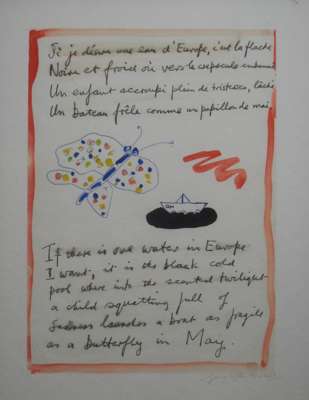 Si je désire une eau d'Europe, c'est la flache
Noire et froide où vers le crépuscule embaumé
Un enfant accroupi plein de tristesse, lâche
Un bateau frêle comme un papillon de mai.
If there is one water in Europe
I want, it is the black cold
pool where into the scented twilight
a child squatting full of
sadness launches a boat as fragile
as a butterfly in May.